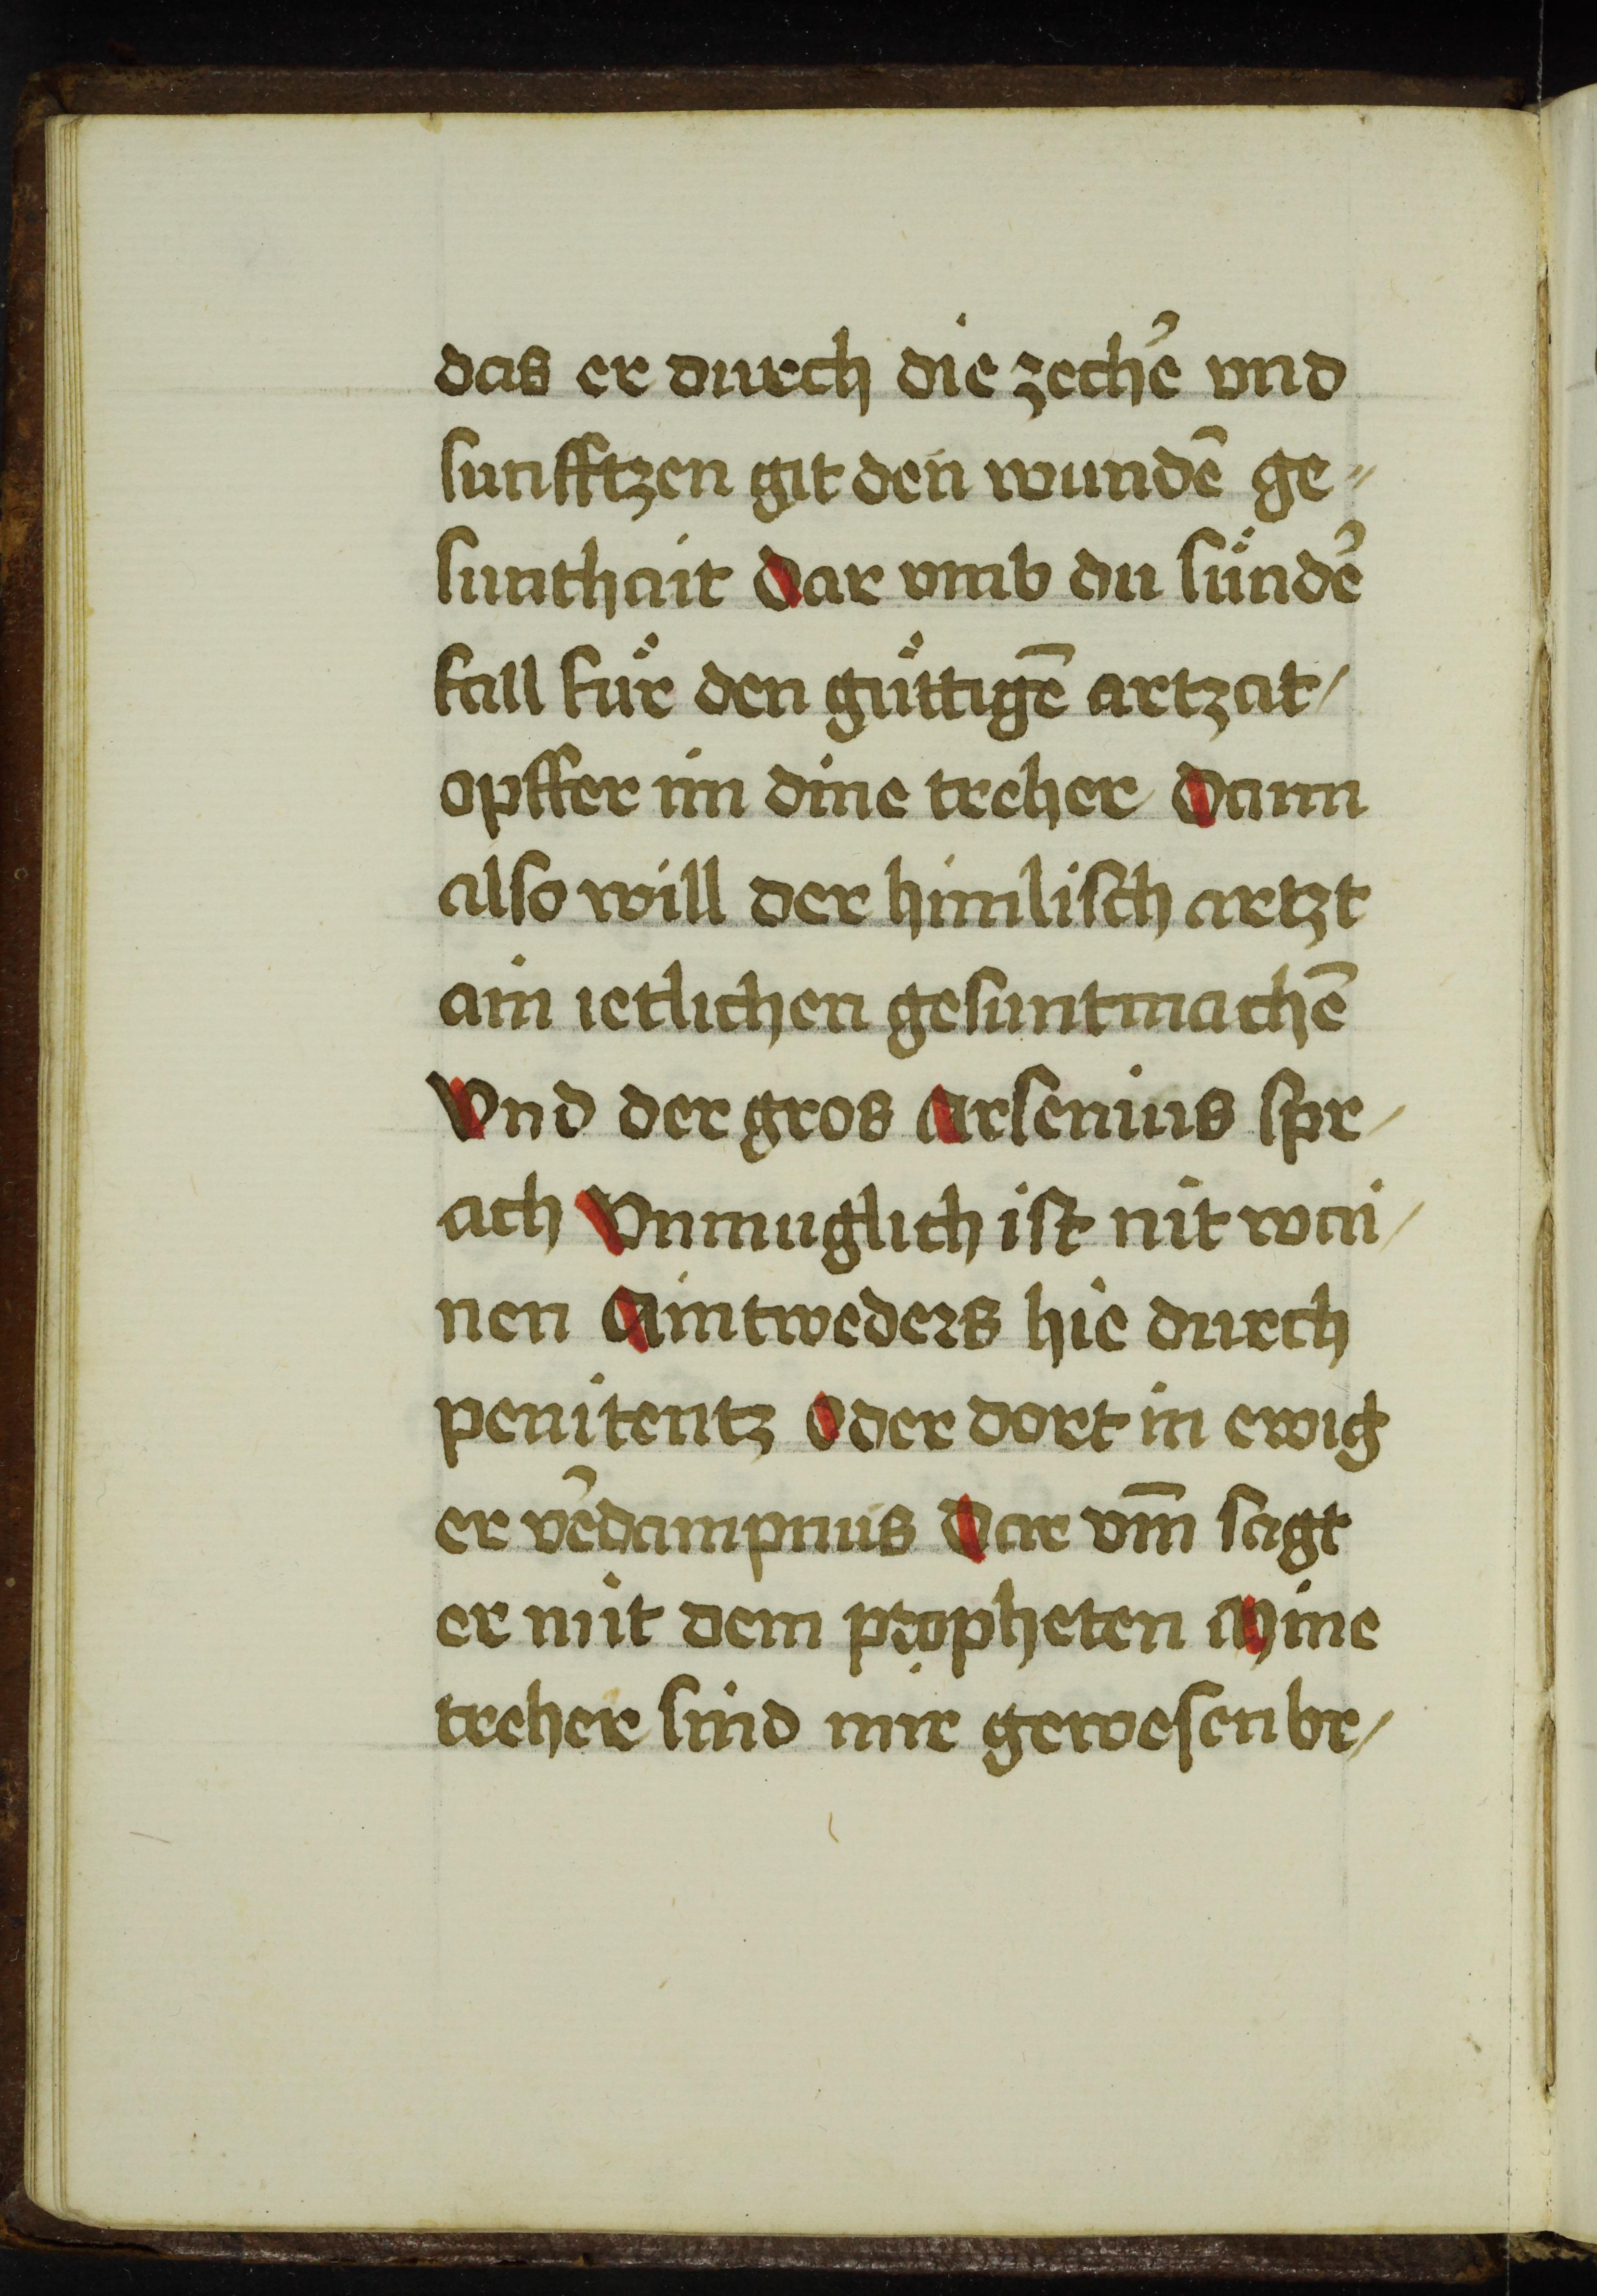 das er durch die zecheʼ vnd
sunfftzen git den wundē ge⸗
sunthait Dar vmb du sünde᷎
fall für den güttigē artzat/
opffer im dine treher Dann
also will der himlisch artzt
ain ietlichen gesuntmachē
Vnd der gros Arsenius spr/
ach Vnmuglich ist nit wai/
nen Aintweders hie durch
penitentz Oder dort in ewig
er ve᷎dampnus Dar vm̄ sagt
er mit dem propheten Mine
treher sind mir gewesen br/